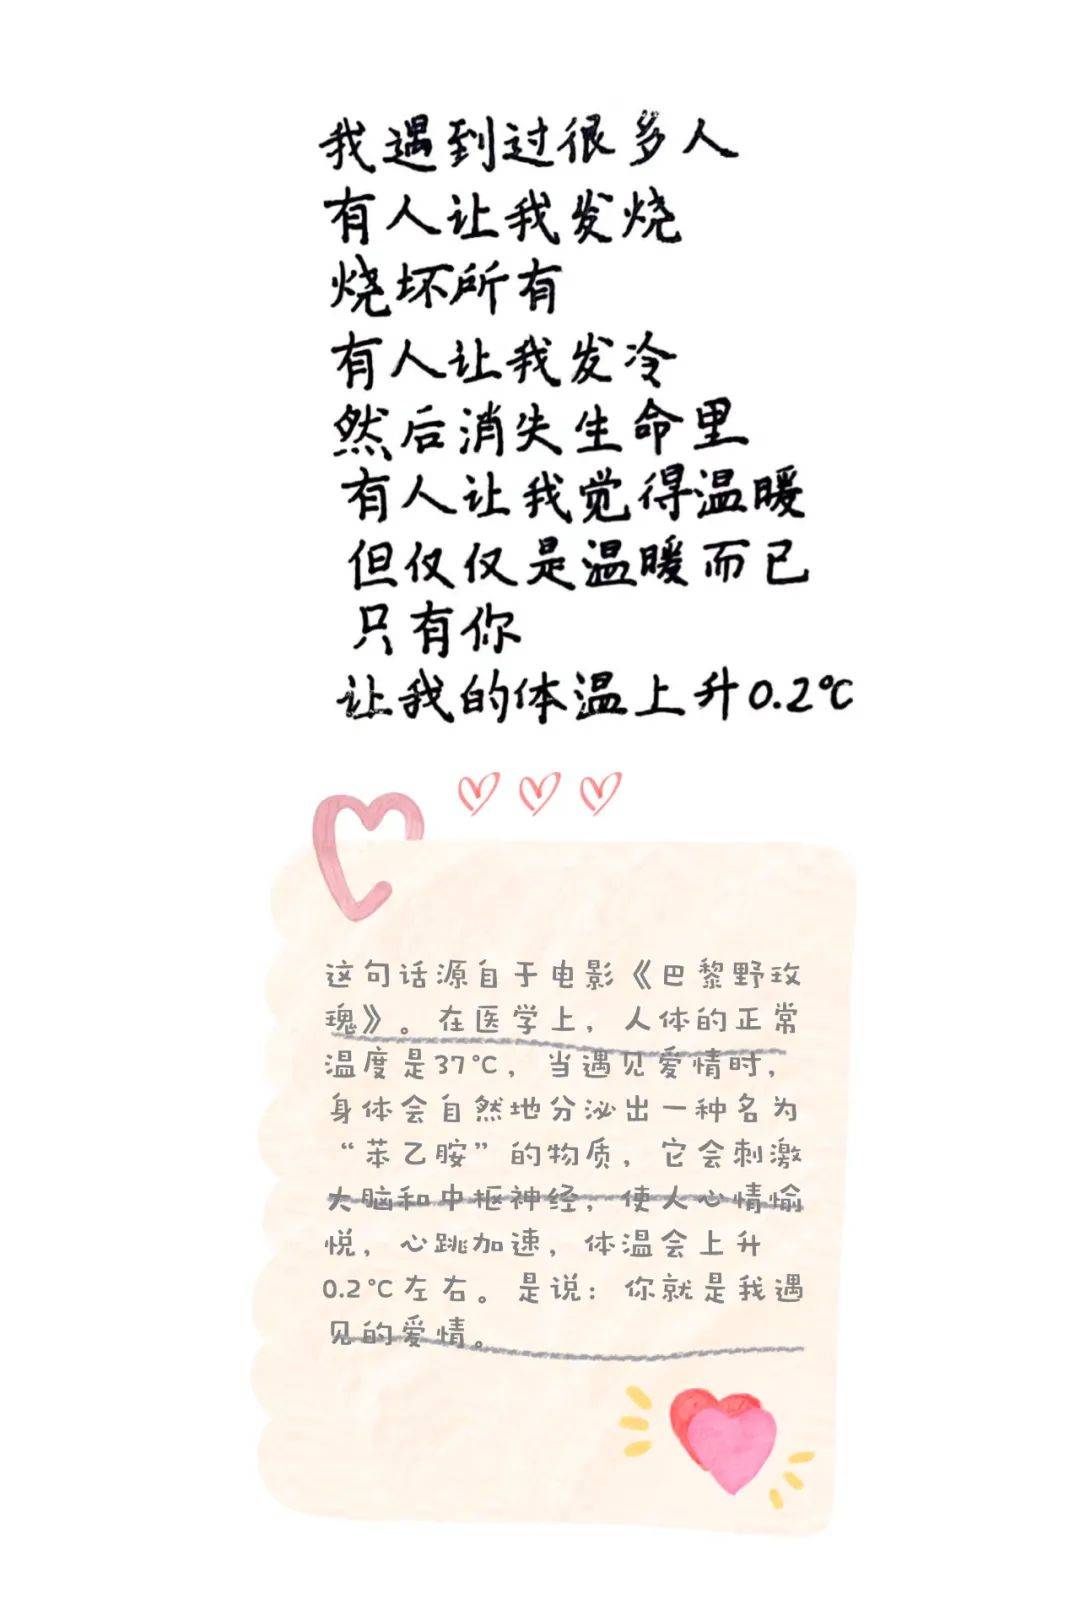 我遇到过很多人
有人让我发烧
烧坏所有
有人让我发冷
然后消失生命里
有人让我觉得温暖
但仅仅是温暖而已
只有你
让我的体温上升0.2℃
这句话源自于电影《巴黎野玫
瑰》。在医学上，人体的正常
温度是37℃，当遇见爱情时，
身体会自然地分泌出一种名为
“苯乙胺”的物质，它会刺激
大脑和中枢神经，使人心情愉
悦，心跳加速，体温会上升
0.2℃左右。是说：你就是我遇
见的爱情。